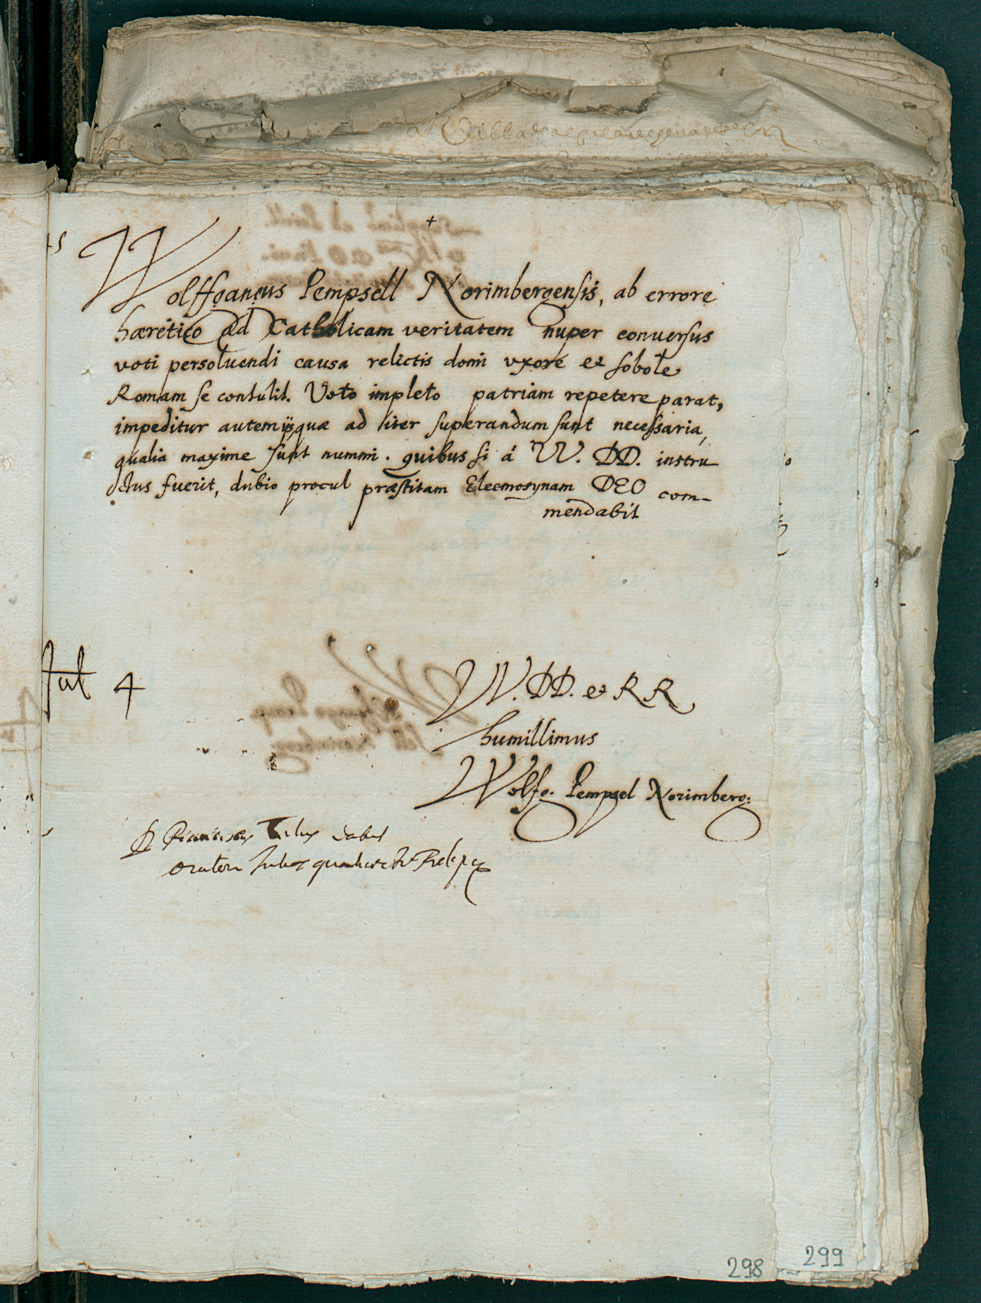 +
Wolffgangus Pempsell Norimbergensis, ab errore
hæretico ad Catholicam veritatem nuper conversus
voti persoluendi causa relictis domi vxore et sobole
Romam se contulit. Voto impleto patriam repetere parat,
impeditur autem ijs quæ ad iter superandum sunt necessaria,
qualia maxime sunt nummi. quibus si á W. DD. instru
ctus fuerit, dubio procul præstitam Eleemosynam DEO com-
mendabit
Jul 4
W. DD. et RR
humillimus
Wolfg. Pempsel Norimberg:
298
299